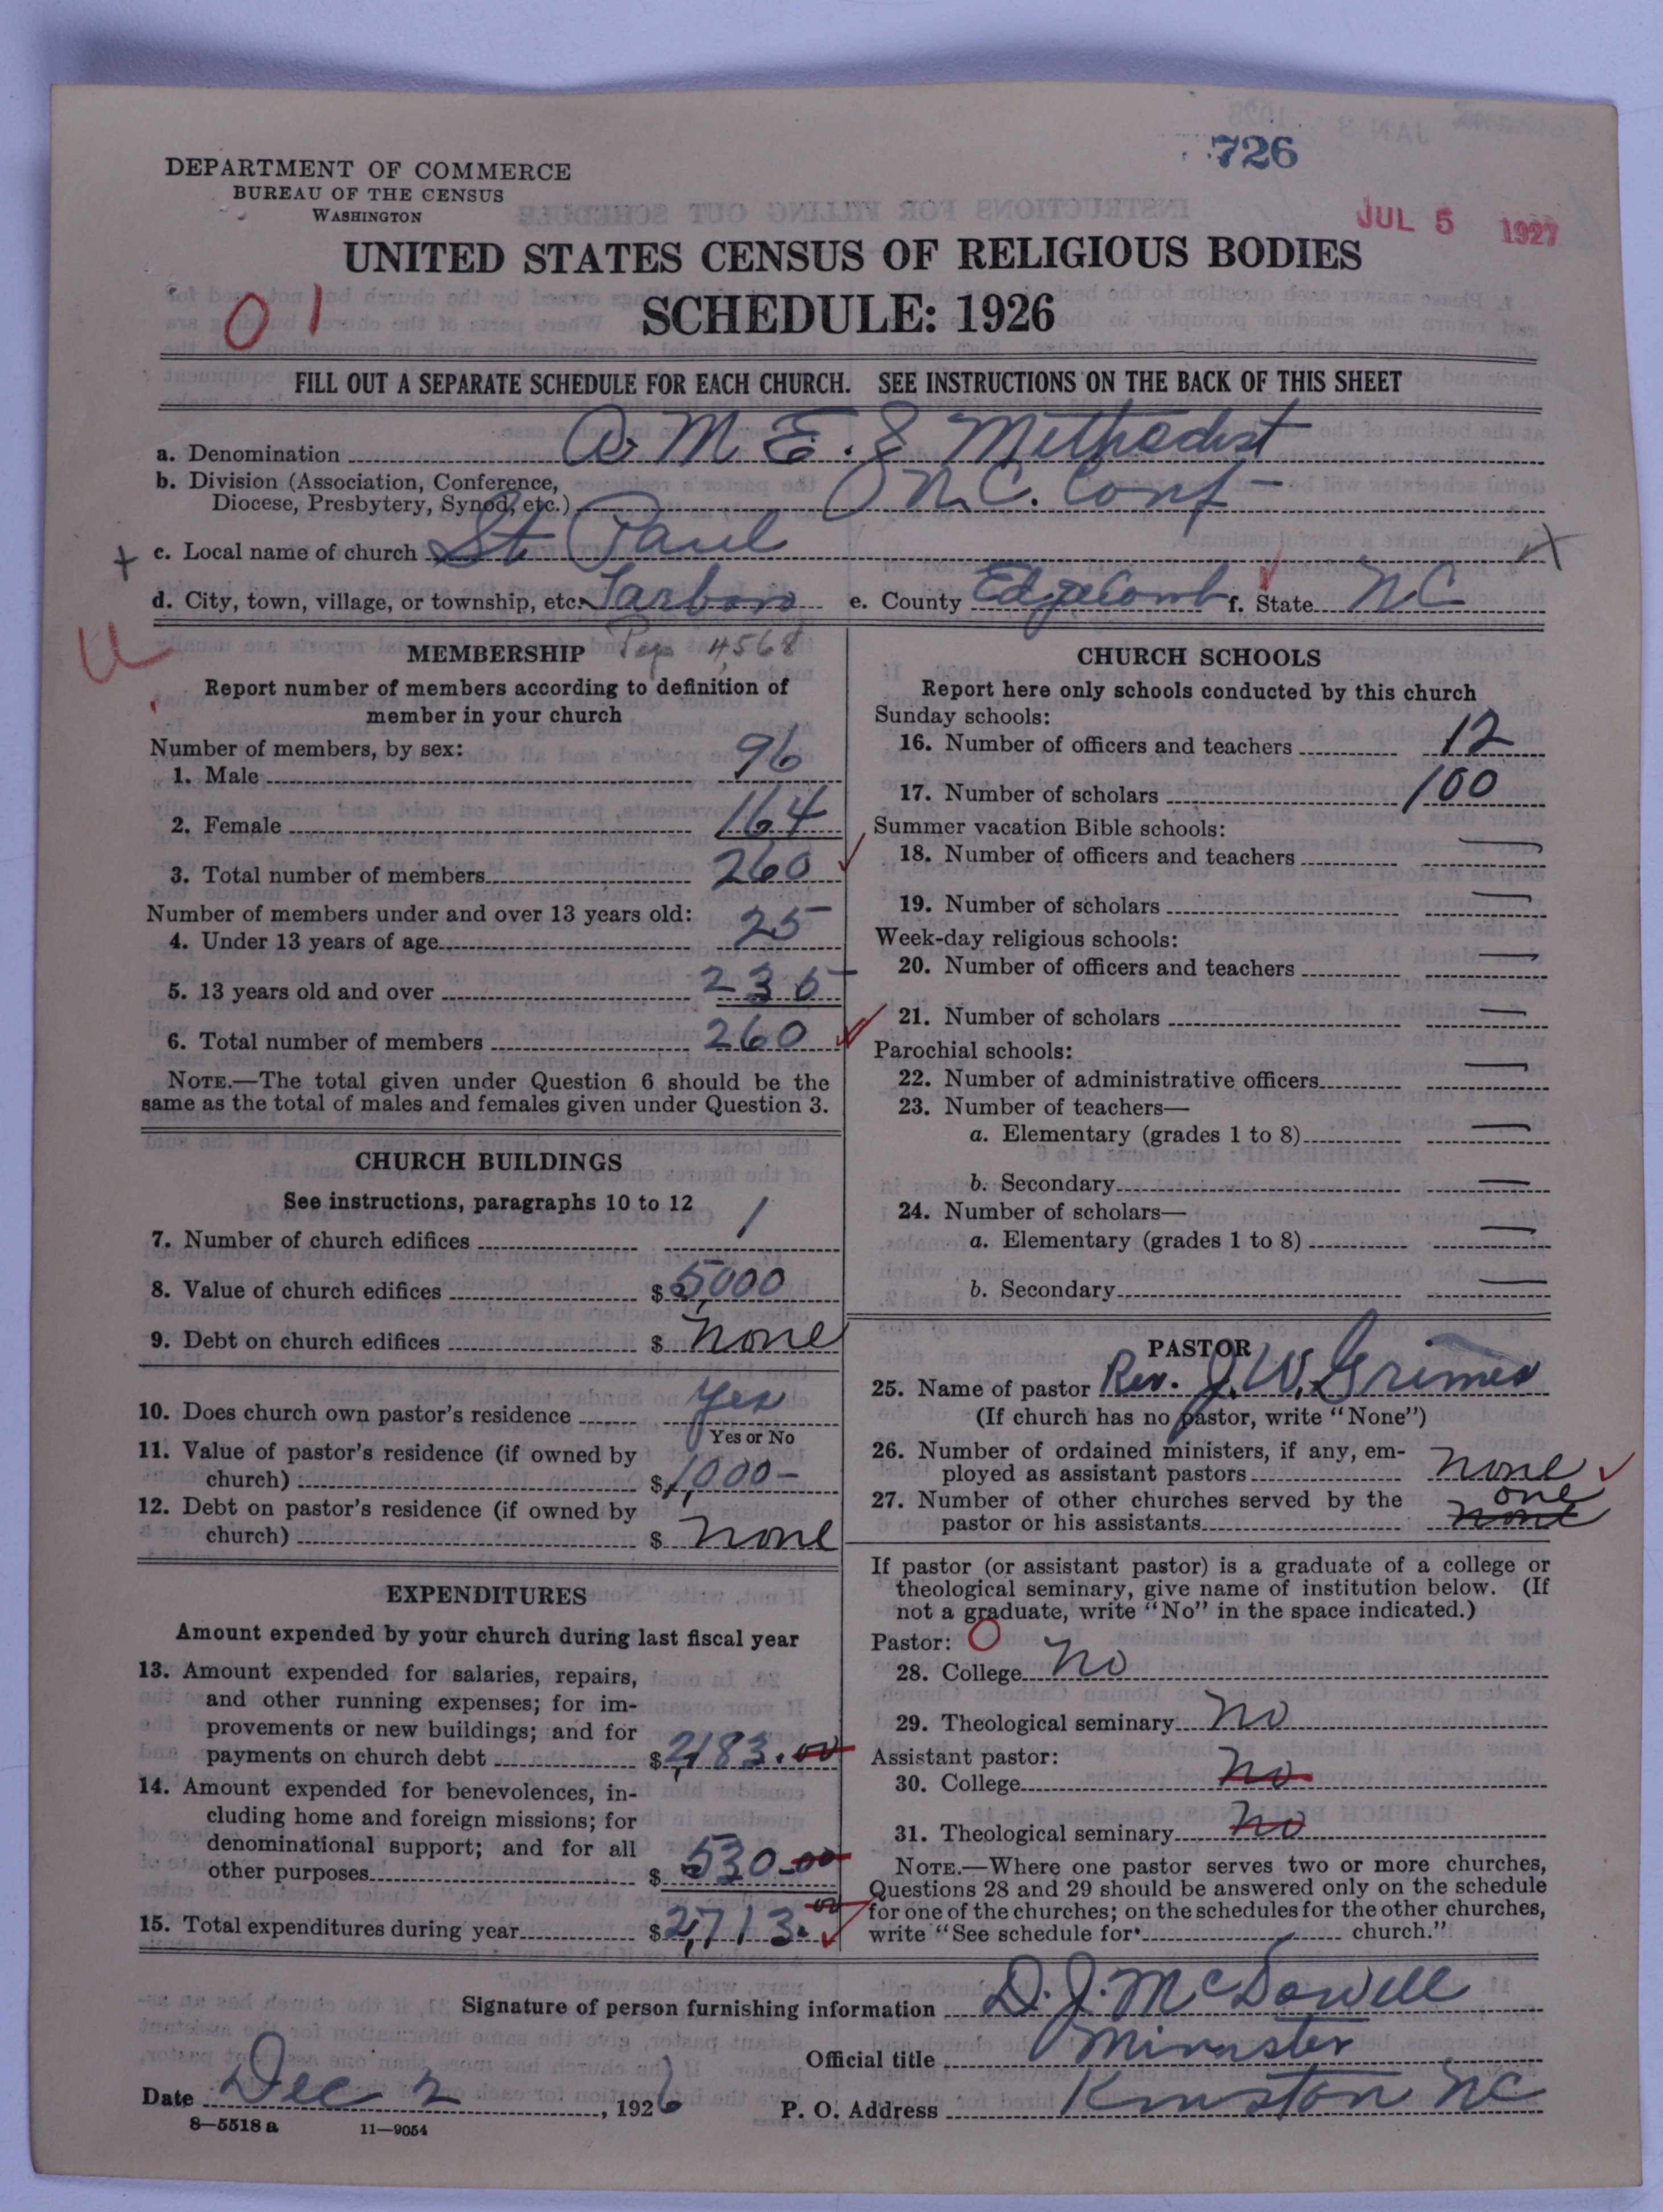 726
DEPARTMENT OF COMMERCE
BUREAU OF THE CENSUS
WASHINGTON
JUL 5 1927
UNITED STATES CENSUS OF RELIGIOUS BODIES
SCHEDULE: 1926
01
FILL OUT A SEPARATE SCHEDULE FOR EACH CHURCH. SEE INSTRUCTIONS ON THE BACK OF THIS SHEET
a. Denomination A. M. E. Z Methodist
b. Division (Association, Conference,
Diocese, Presbytery, Synod, etc.) N.C. Conf
c. Local name of church St Paul
d. City, town, village, or township, etc. Tarboro e. County Edgecomb f. State NC
MEMBERSHIP Pop 4,568
Report number of members according to definition of
member in your church
Number of members, by sex:
1. Male 96
2. Female 164
3. Total number of members 260
Number of members under and over 13 years old:
4. Under 13 years of age 25
5. 13 years old and over 235
6. Total number of members 260
NOTE.—The total given under Question 6 should be the
same as the total of males and females given under Question 3.
CHURCH BUILDINGS
See instructions, paragraphs 10 to 12
7. Number of church edifices 1
8. Value of church edifices $5,000
9. Debt on church edifices $ none
10. Does church own pastor's residence yes
Yes or No
11. Value of pastor's residence (if owned by
church) $1,000-
12. Debt on pastor's residence (if owned by
church) $ none
EXPENDITURES
Amount expended by your church during last fiscal year
13. Amount expended for salaries, repairs,
and other running expenses; for im-
provements or new buildings; and for
payments on church debt $2,183.00
14. Amount expended for benevolences, in-
cluding home and foreign missions; for
denominational support; and for all
other purposes $ 530-00
15. Total expenditures during year $2,713.00
CHURCH SCHOOLS
Report here only schools conducted by this church
Sunday schools:
16. Number of officers and teachers 12
17. Number of scholars 100
Summer vacation Bible schools:
18. Number of officers and teachers —
19. Number of scholars —
Week-day religious schools:
20. Number of officers and teachers —
21. Number of scholars —
Parochial schools:
22. Number of administrative officers —
23. Number of teachers—
a. Elementary (grades 1 to 8) —
b. Secondary —
24. Number of scholars—
a. Elementary (grades 1 to 8) —
b. Secondary —
PASTOR
25. Name of pastor Rev. J. W. Grimes
(If church has no pastor, write "None")
26. Number of ordained ministers, if any, em-
ployed as assistant pastors none
27. Number of other churches served by the one
pastor or his assistants none
If pastor (or assistant pastor) is a graduate of a college or
theological seminary, give name of institution below. (If
not a graduate, write "No" in the space indicated.)
Pastor: O
28. College no
29. Theological seminary no
Assistant pastor:
30. College no
31. Theological seminary no
NOTE.—Where one pastor serves two or more churches,
Questions 28 and 29 should be answered only on the schedule
for one of the churches; on the schedules for the other churches,
write "See schedule for church."
Signature of person furnishing information D. J. McDowell
Official title Minister
Date Dec 2, 1926 P. O. Address Kinston NC
8—5518 a 11—9054